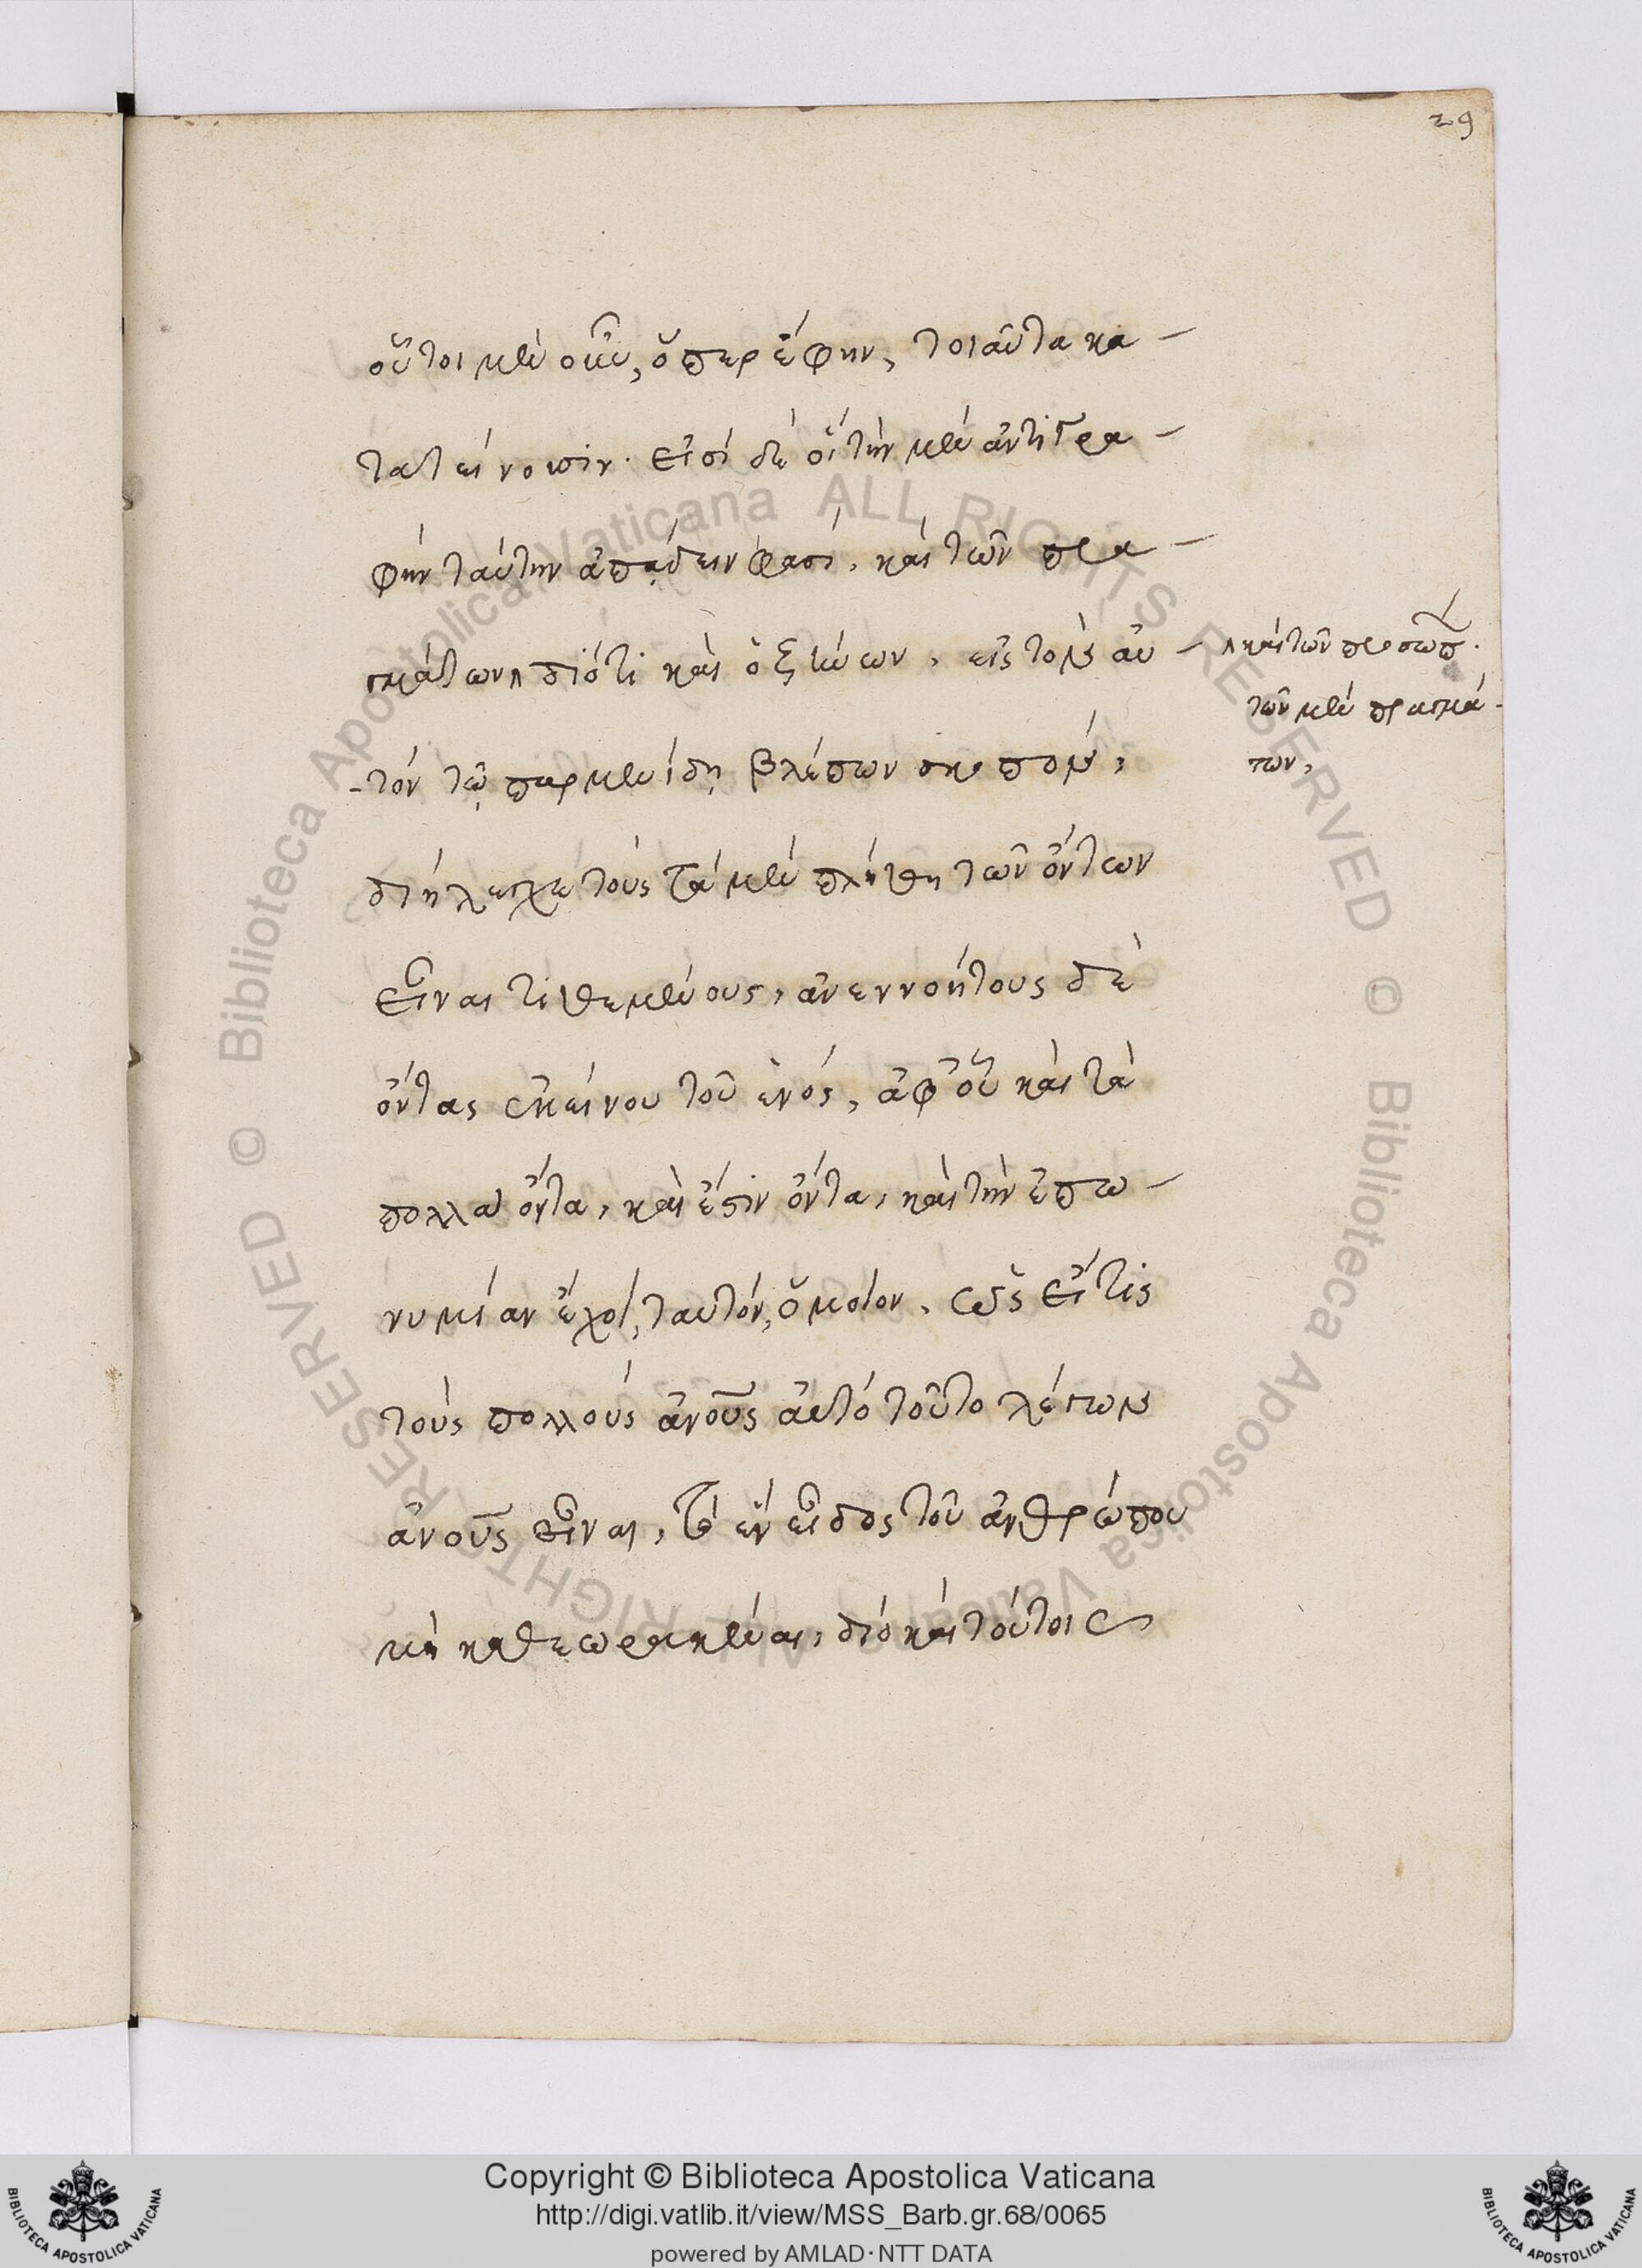 29
οὗτοι μὲν οὖν, ὅπερ ἔφην, τοιαῦτα κα-
τατείνουσιν. εἰσὶ δὲ οἳ τὴν μὲν ἀντιγρα-
φὴν ταύτην ἀπᾴδειν φασὶ, καὶ τῶν πρα-
γμάτων διότι καὶ ὁ ζήνων, εἰς τὸν αὐ-
τὸν τῷ παρμενίδῃ βλέπων σκοπὸν,
διήλεγχε τοὺς τὰ μὲν πλήθη τῶν ὄντων
εἶναι τιθεμένους, ἀνεννοήτους δὲ
ὄντας ἐκείνου τοῦ ἑνός, ἀφ' οὗ καὶ τὰ
πολλὰ ὄντα, καὶ ἔστιν ὄντα, καὶ τὴν ἐπω-
νυμίαν ἔχοι, ταυτὸν, ὅμοιον, ὡς εἴ τις
τοὺς πολλοὺς ἀνους αὐτὸ τοῦτο λέγων
ἀνους εἶναι, τὸ ἓν εἶδος τοῦ ἀνθρώπου
μὴ καθεωρακέναι, διὸ καὶ τούτοις
καὶ τῶν προσώπ.
τῶν μὲν πραγμά-
των,
Copyright © Biblioteca Apostolica Vaticana
http://digi.vatlib.it/view/MSS_Barb.gr.68/0065
powered by AMLAD·NTT DATA
BIBLIOTECA APOSTOLICA VATICANA
BIBLIOTECA APOSTOLICA VATICANA
© Biblioteca Apostolica Vaticana ALL RIGHTS RESERVED © Biblioteca Apostolica Vaticana ALL RIGHTS RESERVED